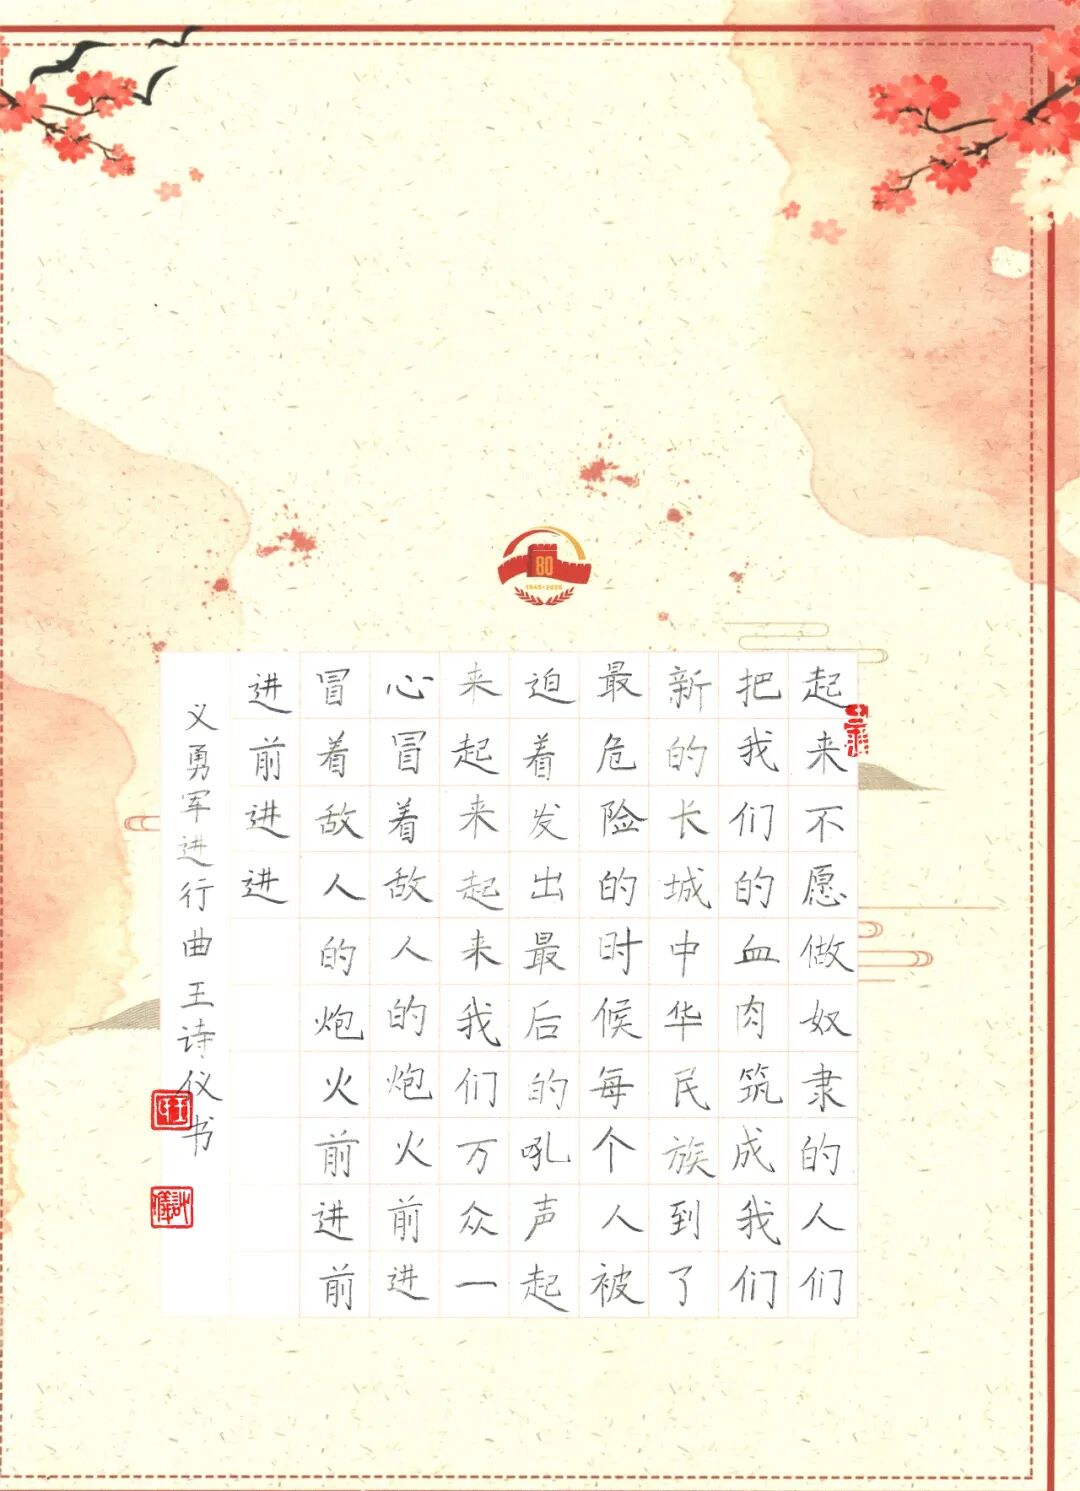 起来不愿做奴隶的人们
把我们的血肉筑成我们
新的长城中华民族到了
最危险的时候每个人被
迫着发出最后的吼声起
来起来起来我们万众一
心冒着敌人的炮火前进
冒着敌人的炮火前进前
进前进进
义勇军进行曲 王诗仪书
80
1945-2025